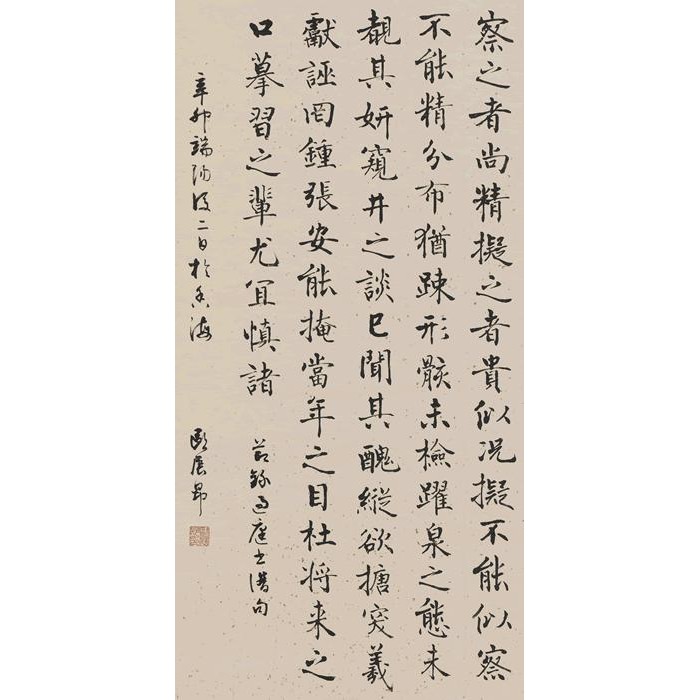 察之者尚精擬之者貴似况擬不能似察
不能精分布猶疎形骸未檢躍泉之態未
覩其妍窺井之談已聞其醜縱欲搪突羲
獻誣罔鍾張安能掩當年之目杜将来之
口摹習之輩尤宜慎諸
節録過庭書譜句
辛卯端陽後二日於香海
區展昂